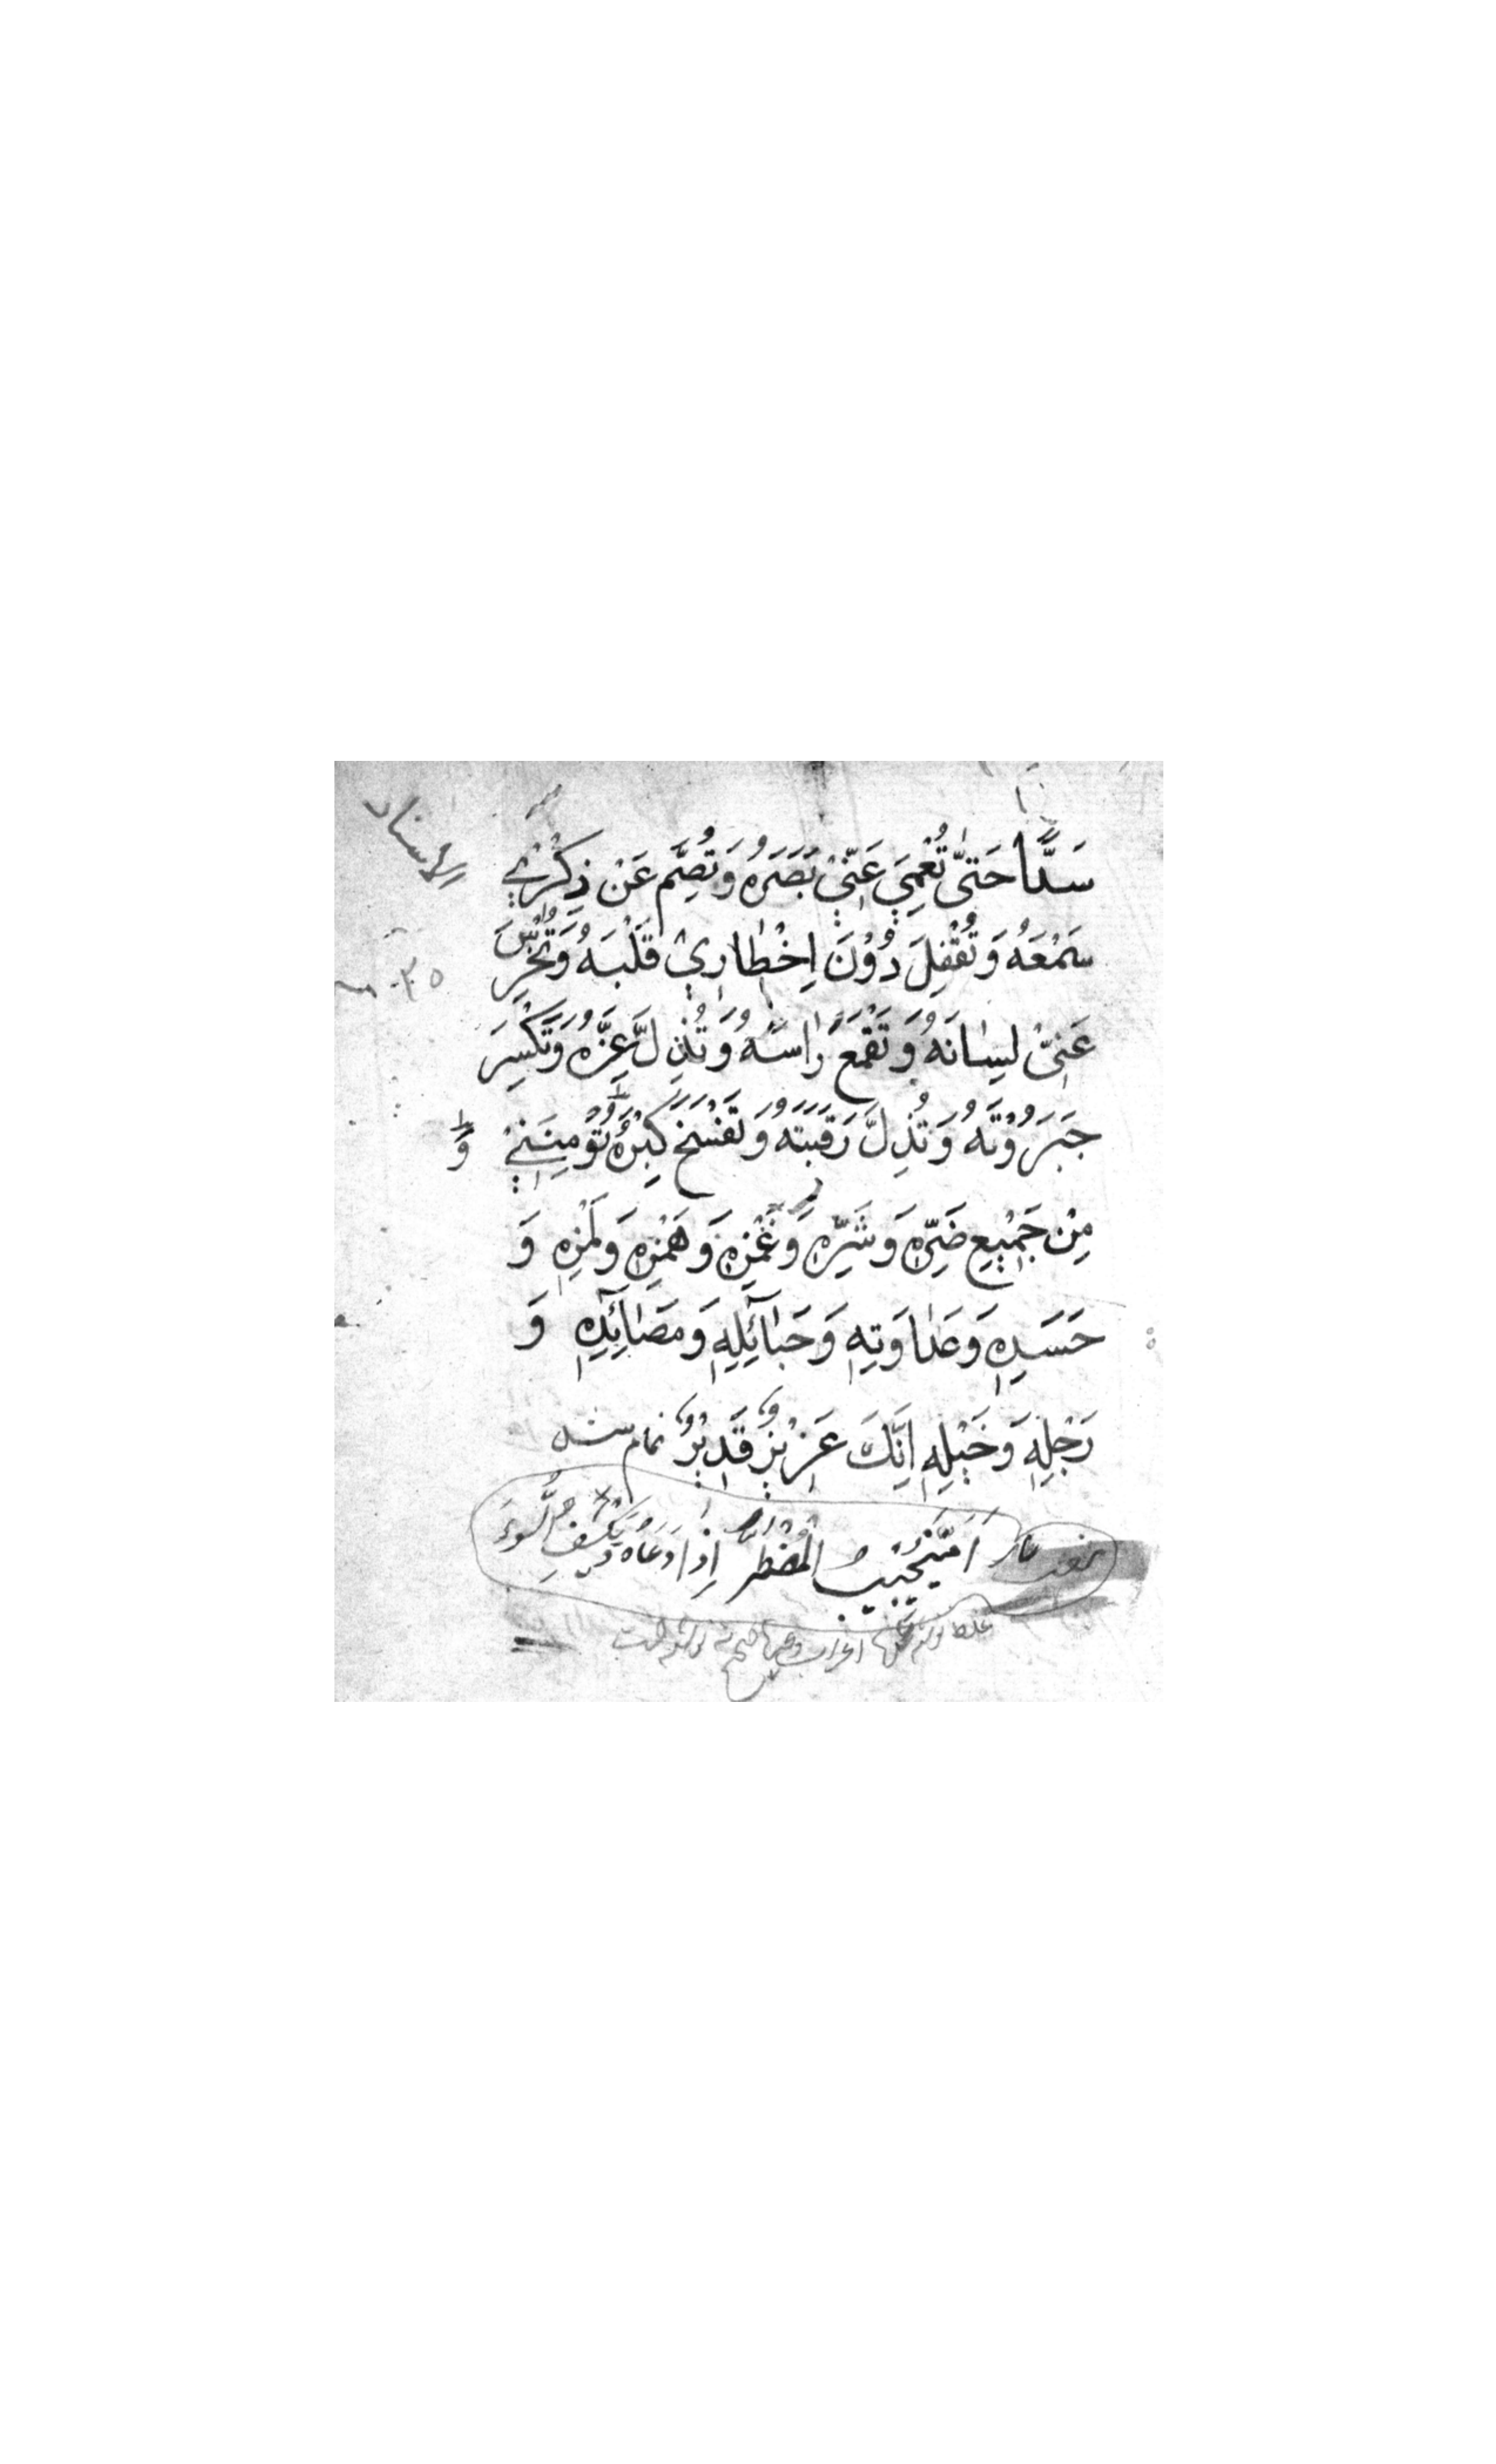 سَدًّا حَتّٰى تُعْمِيَ عَنِّيْ بَصَرَهُ وَتُصِمَّ عَنْ ذِكْرِيْ
سَمْعَهُ وَتُقْفِلَ دُوْنَ اِخْطٰارِيْ قَلْبَهُ وَتُخْرِسَ
عَنِّىْ لِسٰانَهُ وَتَقْمَعَ رَاْسَهُ وَتُذِلَّ عِزَّهُ وَتَكْسِرَ
جَبَرُوْتَهُ وَتُذِلَّ رَقَبَتَهُ وَتَفْسَخَ كِبْرَهُ وَتُؤْمِنَنِيْ
مِنْ جَمِيْعِ ضَرِّهِ وَشَرِّهِ وَغَمْزِهِ وَهَمْزِهِ وَلَمْزِهِ وَ
حَسَدِهِ وَعَدٰاوَتِهِ وَحَبٰآئِلِهِ وَمَصٰآئِدِهِ وَ
رَجْلِهِ وَخَيْلِهِ اِنَّكَ عَزِيْزٌ قَدِيْرٌ تمام شد
اَمَّنْ يُجِيْبُ الْمُضْطَرَّ اِذٰا دَعَاهُ وَيَكْشِفُ السُّوءَ
غلط